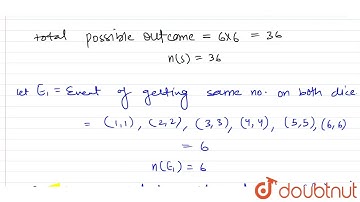 total possible outcome = 6x6 = 36
n(s) = 36
let E₁ = Event of getting same no. on both dice
= (1,1) , (2,2) , (3,3) , (4,4) , (5,5) , (6,6)
= 6
n(E₁) = 6
doubtnut